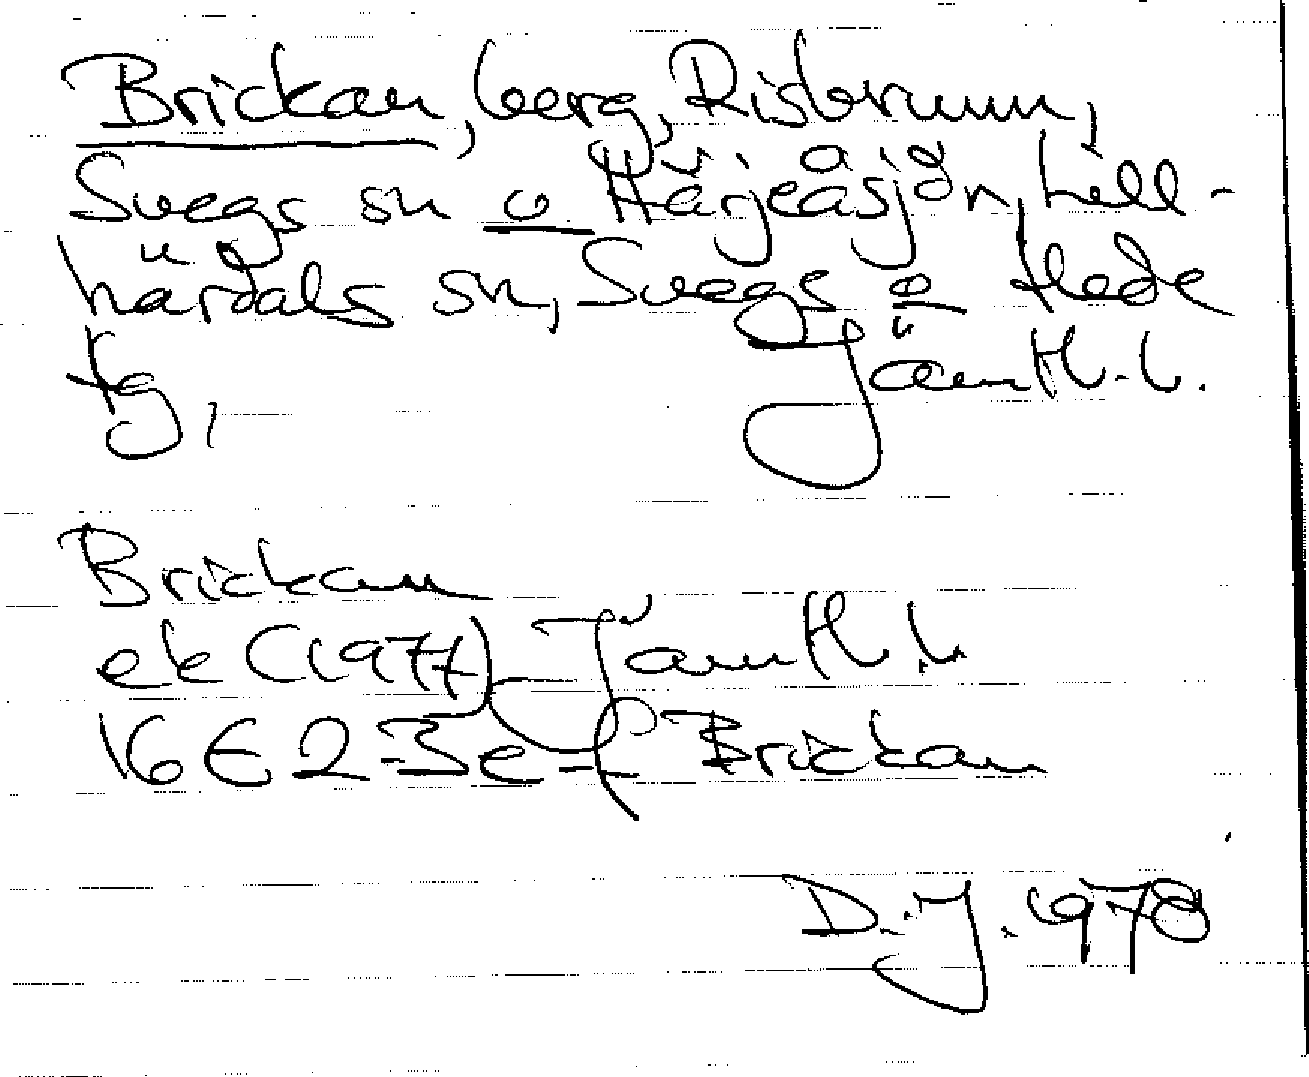 Brickan, berg, Risbrunn,
Svegs sn o Härjeåsjön, Lill-
härdals sn, Svegs o Hede
tg, Jämtl. l.
Brickan
ek (1977) Jämtl. l.
16 E 2-3 e-f Brickan
D.J. 1978